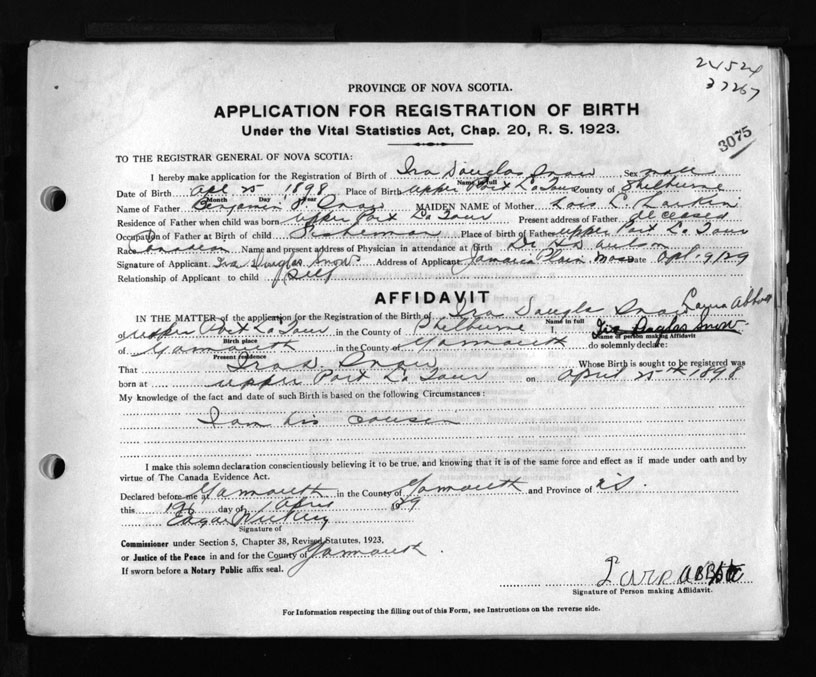 24524
37267
3075
PROVINCE OF NOVA SCOTIA.
APPLICATION FOR REGISTRATION OF BIRTH
Under the Vital Statistics Act, Chap. 20, R. S. 1923.
TO THE REGISTRAR GENERAL OF NOVA SCOTIA:
I hereby make application for the Registration of Birth of Ira Douglas Snow Sex male
Name in full
Date of Birth Apl 25 1898 Place of Birth Upper Port La Tour County of Shelburne
Month Day Year
Name of Father Benjamin Snow MAIDEN NAME of Mother Lois L. Larkin
Residence of Father when child was born Upper Port La Tour Present address of Father deceased
Occupation of Father at Birth of child Fisherman Place of birth of Father Upper Port La Tour
Race Canadian Name and present address of Physician in attendance at Birth Dr
Signature of Applicant Ira Douglas Snow Address of Applicant Jamaica Plain, Mass Date Apl. 9/29
Relationship of Applicant to child Self
AFFIDAVIT
IN THE MATTER of the application for the Registration of the Birth of Ira Douglas Snow
Name in full
of Upper Port La Tour in the County of Shelburne I, Ira Douglas Snow
Birth place
Name of person making Affidavit
of Yarmouth in the County of Yarmouth do solemnly declare:
Present residence
That Ira D. Snow Whose Birth is sought to be registered was
born at Upper Port La Tour on April 25th 1898
My knowledge of the fact and date of such Birth is based on the following Circumstances:
I am his cousin
I make this solemn declaration conscientiously believing it to be true, and knowing that it is of the same force and effect as if made under oath and by
virtue of The Canada Evidence Act.
Declared before me at Yarmouth in the County of Yarmouth and Province of N.S.
this day of April 29
Edgar
Signature of
Commissioner under Section 5, Chapter 38, Revised Statutes, 1923,
or Justice of the Peace in and for the County of Yarmouth.
If sworn before a Notary Public affix seal.
Abbott
Signature of Person making Affidavit.
For Information respecting the filling out of this Form, see Instructions on the reverse side.